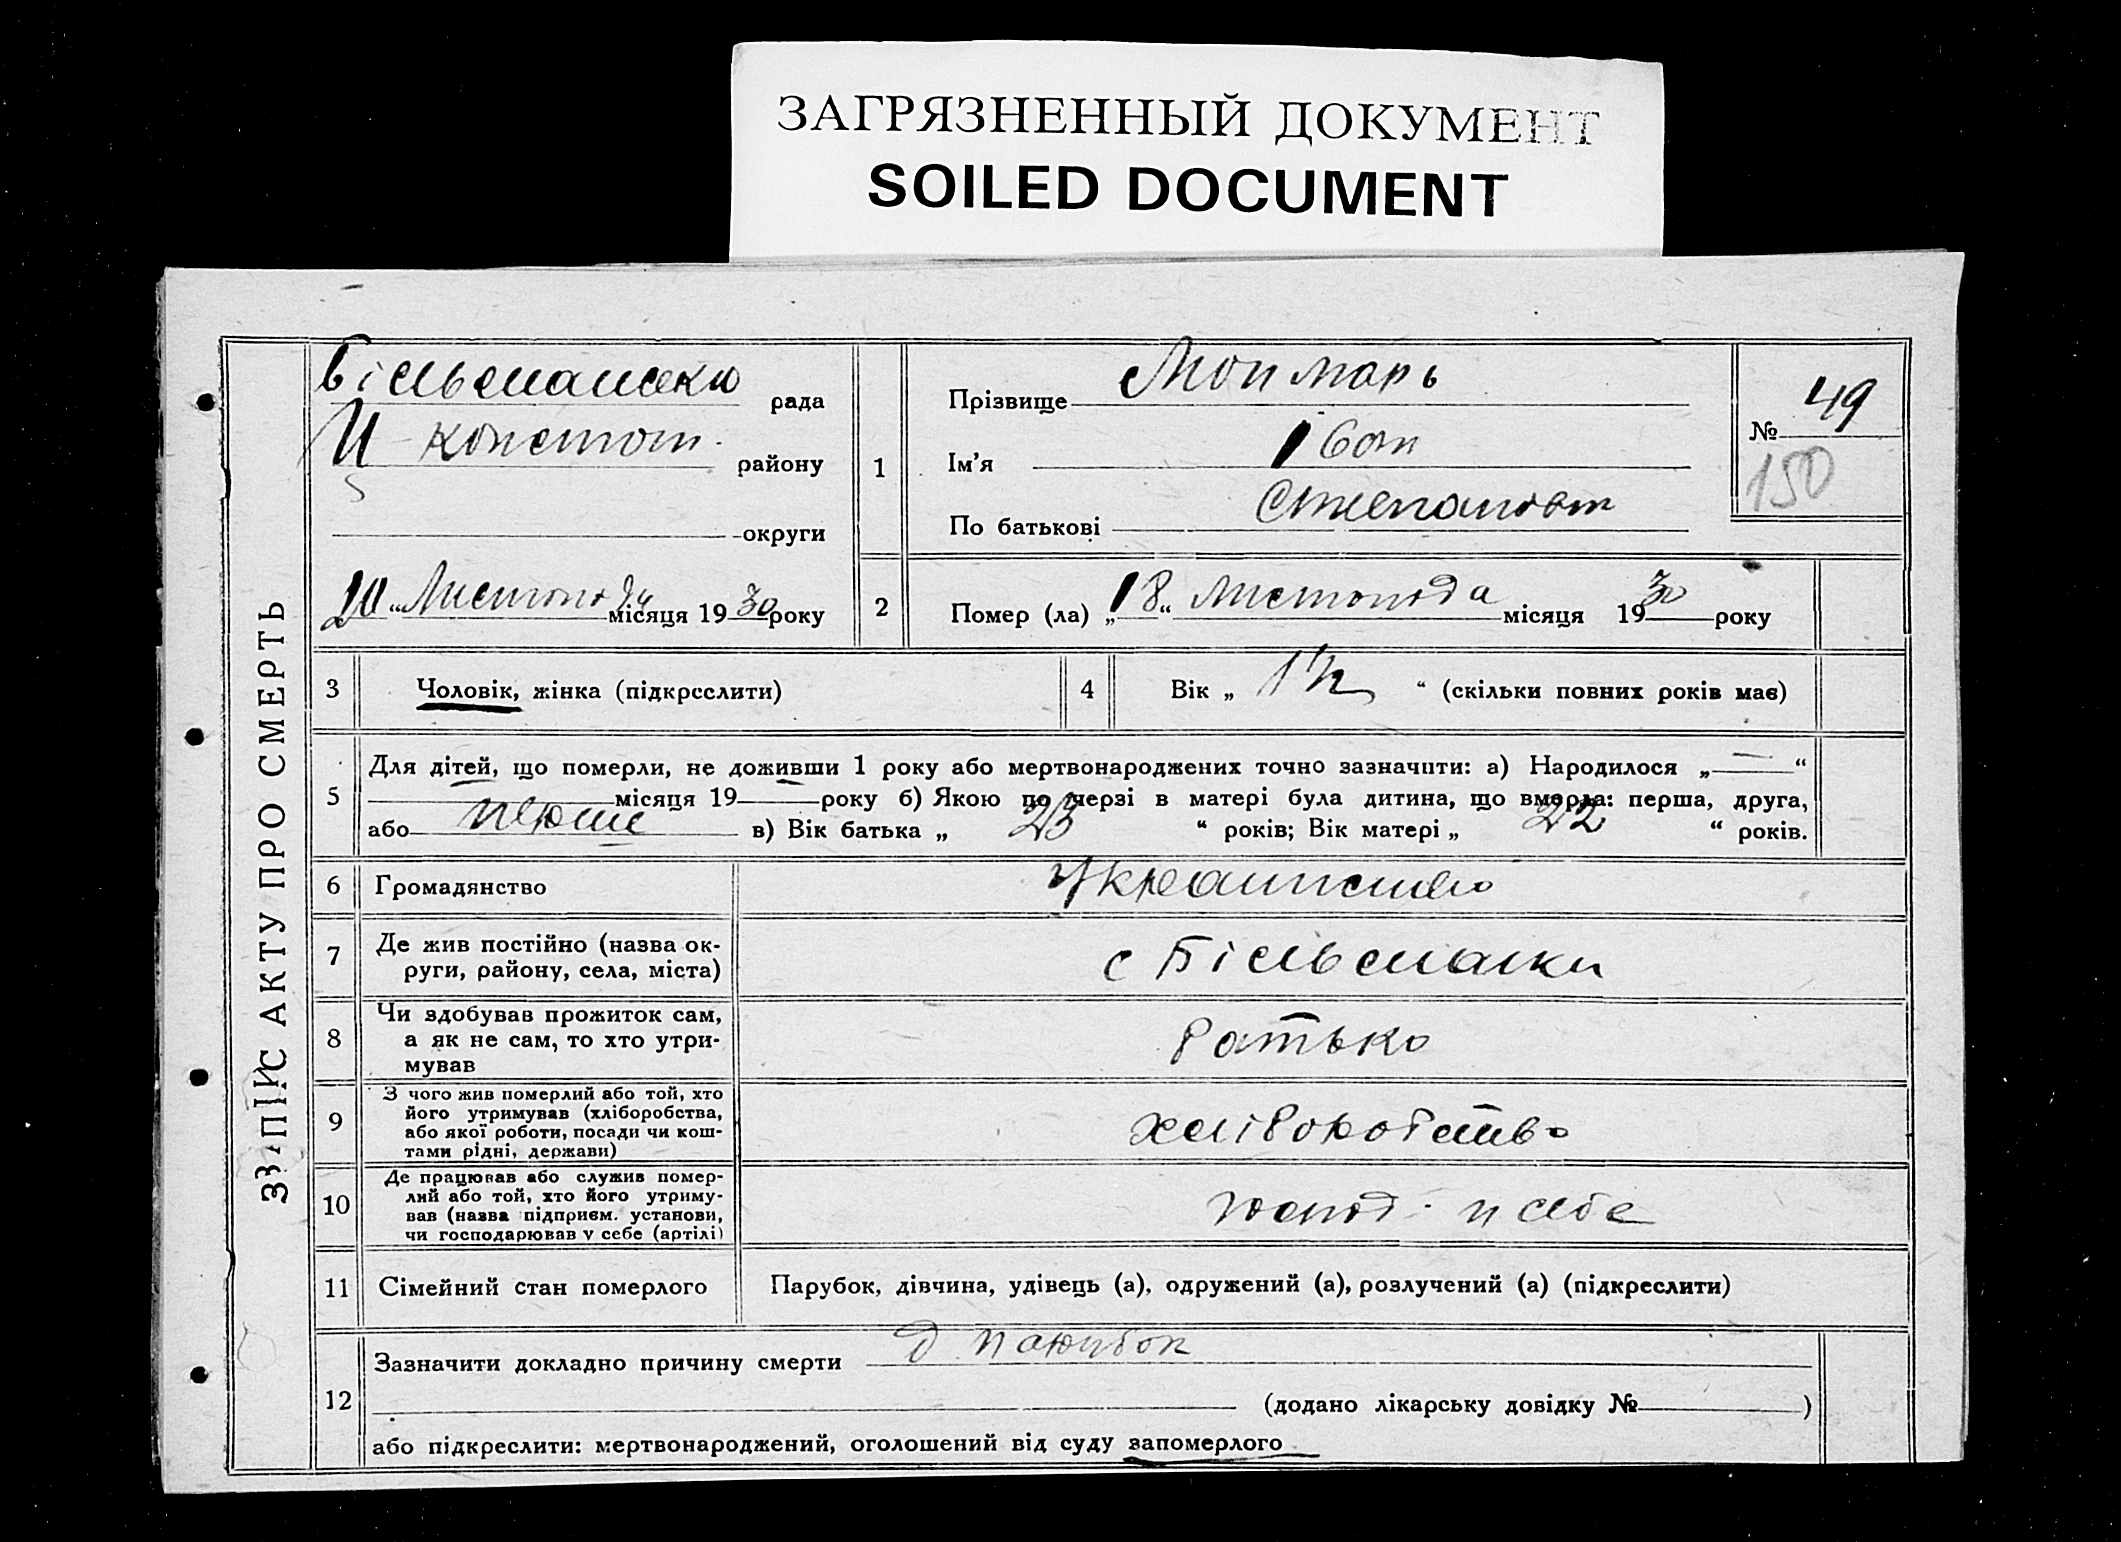 ЗАГРЯЗНЕННЫЙ ДОКУМЕНТ
SOILED DOCUMENT
ЗАПИС АКТУ ПРО СМЕРТЬ
рада
района
округи
20 „Листопода місяця 19 30 року
1
Прізвище
Ім'я Іван
По батькові Степанович
№ 49
150
2
Помер (ла) „18“ Листопода місяця 19 30 року
3
Чоловік, жінка (підкреслити)
4
Вік „ 1 ½ “ (скільки повних років має)
5
Для дітей, що померли, не доживши 1 року або мертвонароджених точно зазначити: а) Народилося „ — “
місяця 19 року б) Якою по черзі в матері була дитина, що вмерла: перша, друга,
або в) Вік батька „ 23 “ років; Вік матері „ 22 “ років.
6
Громадянство
7
Де жив постійно (назва ок-
руги, району, села, міста)
с Більманки
8
Чи здобував прожиток сам,
а як не сам, то хто утри-
мував
батько
9
З чого жив померлий або той, хто
його утримував (хліборобства,
або якої роботи, посади чи кош-
тами рідні, держави)
хліборобство
10
Де працював або служив помер-
лий або той, хто його утриму-
вав (назва підприєм. установи,
чи господарював у себе (артілі)
себе
11
Сімейний стан померлого
Парубок, дівчина, удівець (а), одружений (а), розлучений (а) (підкреслити)
12
Зазначити докладно причину смерти
(додано лікарську довідку № )
або підкреслити: мертвонароджений, оголошений від суду запомерлого